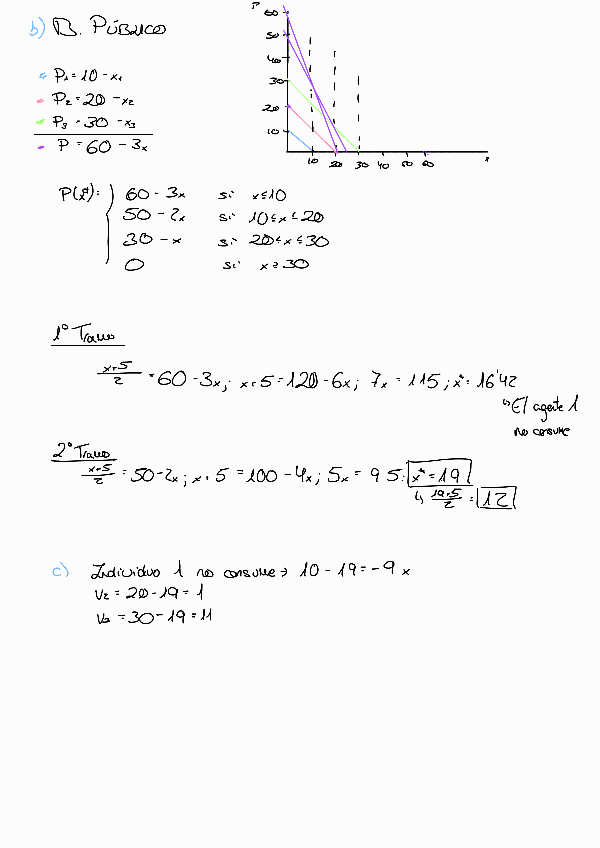 b) B. PÚBLICO
P₁ = 10 - x₁
P₂ = 20 - x₂
P₃ = 30 - x₃
P = 60 - 3x
P
60
50
40
30
20
10
10 20 30 40 50 60 x
60 - 3x si x ≤ 10
50 - 2x si 10 ≤ x ≤ 20
30 - x si 20 ≤ x ≤ 30
0 si x ≥ 30
1º Tramo
x+5/2 = 60 - 3x; x+5 = 120 - 6x; 7x = 115; x* = 16'42
↳ El agente 1
no consume
2º Tramo
x+5/2 = 50 - 2x; x+5 = 100 - 4x; 5x = 95; x* = 19
↳ 19+5/2 = 12
c) Individuo 1 no consume → 10 - 19 = -9 x
V₂ = 20 - 19 = 1
V₃ = 30 - 19 = 11